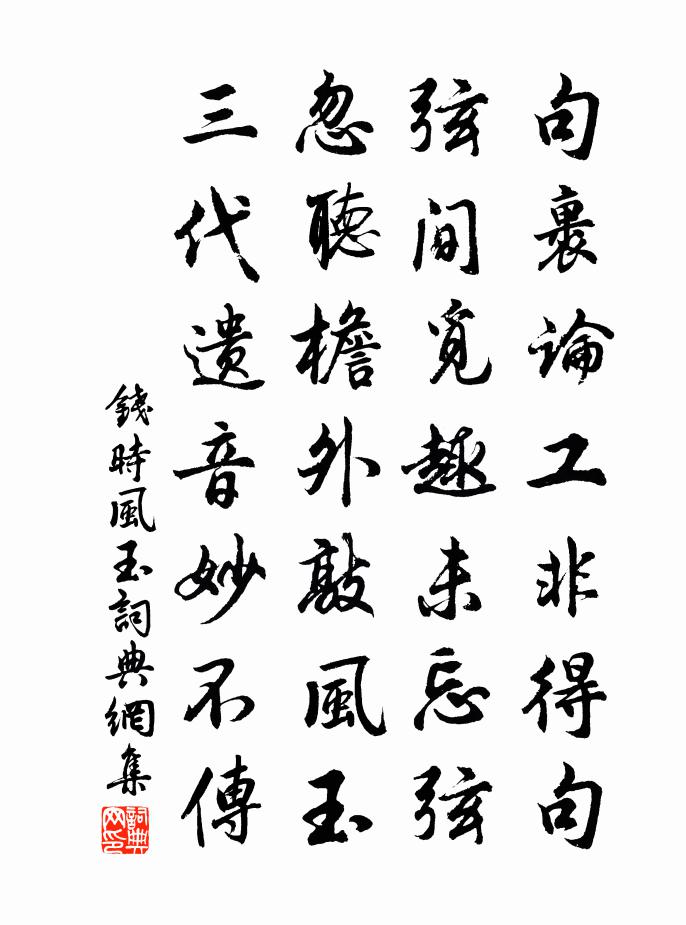 句裏論工非得句
弦間覓趣未忘弦
忽聽檐外敲風玉
三代遺音妙不傳
錢時風玉詞典網集
詞典网印